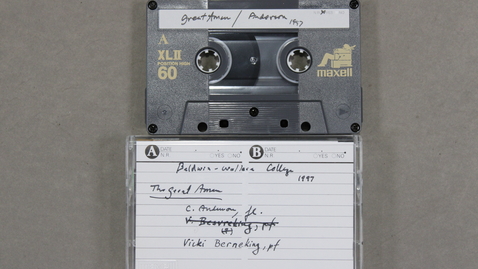 Great Amen / Anderson
1997
A
XLII
POSITION HIGH
60
maxell
A DATE
N.R. YES NO
B DATE
N.R. YES NO
Baldwin-Wallace College
1997
The Great Amen
C. Anderson, fl.
V. Berneking, pf
Vicki Berneking, pf